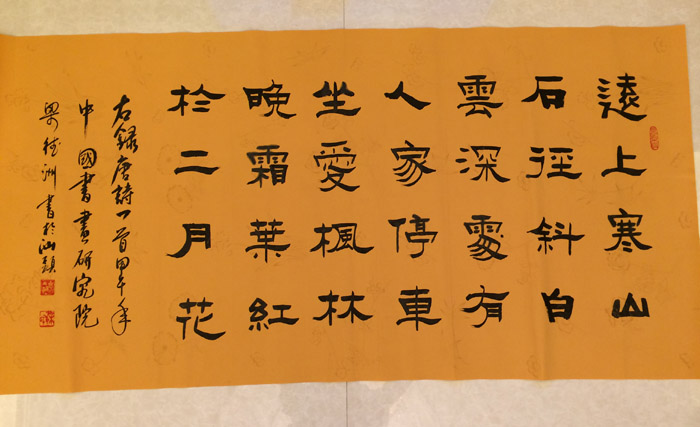 遠上寒山
石徑斜白
雲深處有
人家停車
坐愛楓林
晚霜葉紅
於二月花
右錄唐詩一首甲午年
中國書畫研究院
梁德洲書於汕頭